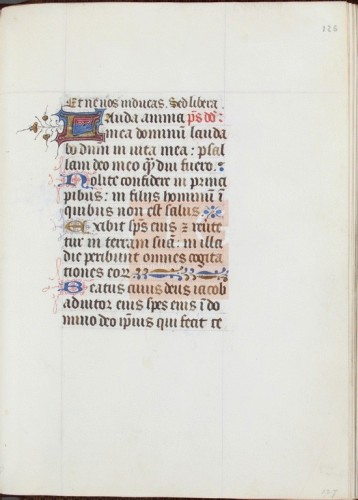 126
Et ne nos inducas. Sed libera.
Lauda anima p̄s dō:
mea dominū lauda
bo dnm̄ in uita mea: psal
lam deo meo qͣdiu fuero.
Nolite confidere in princi
pibus: in filiis hominū ī
quibus non est salus
Exibit sp̄s eius ⁊ reuer
tur in terram suā: in illa
die peribunt omnes cogita
tiones eor̄
Beatus cuius deus iacob
adiutor eius spes eius ī do
mino deo ipsius qui fecit ce